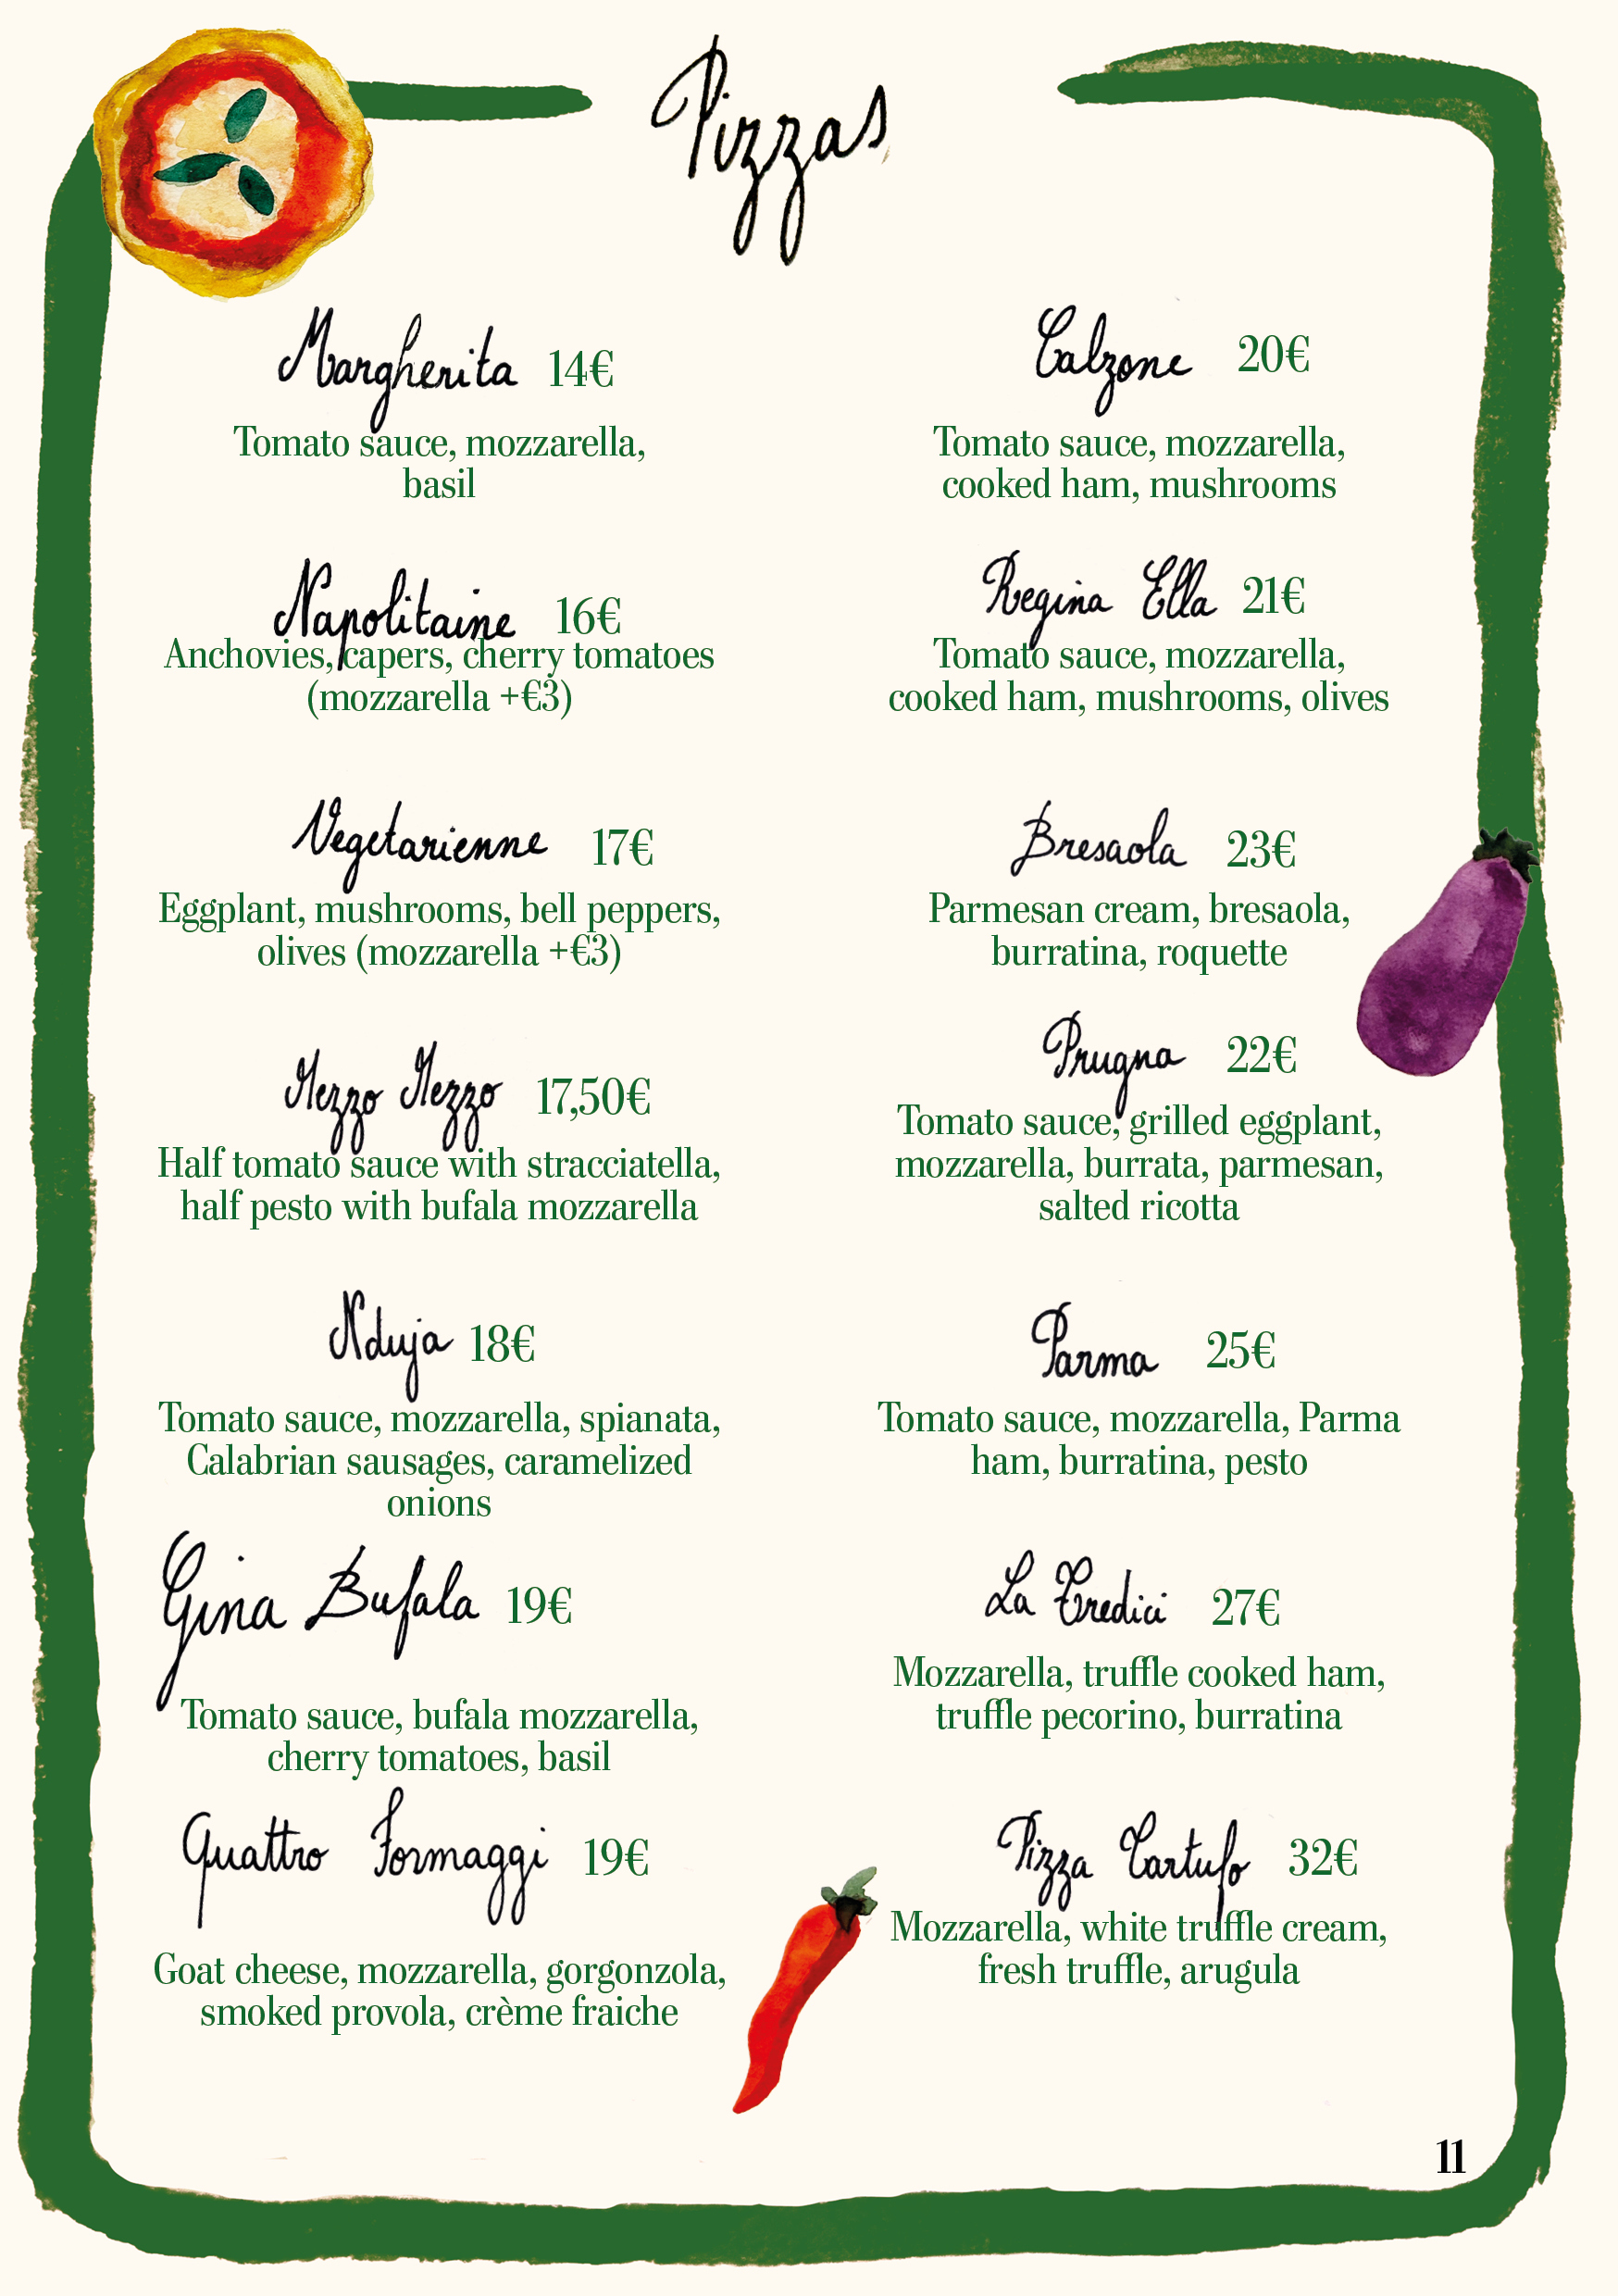 Pizzas
Margherita 14€
Tomato sauce, mozzarella,
basil
Napolitaine 16€
Anchovies, capers, cherry tomatoes
(mozzarella +€3)
Vegetarienne 17€
Eggplant, mushrooms, bell peppers,
olives (mozzarella +€3)
Mezzo Mezzo 17,50€
Half tomato sauce with stracciatella,
half pesto with bufala mozzarella
Nduja 18€
Tomato sauce, mozzarella, spianata,
Calabrian sausages, caramelized
onions
Gina Bufala 19€
Tomato sauce, bufala mozzarella,
cherry tomatoes, basil
Quattro Formaggi 19€
Goat cheese, mozzarella, gorgonzola,
smoked provola, crème fraiche
Calzone 20€
Tomato sauce, mozzarella,
cooked ham, mushrooms
Regina Ella 21€
Tomato sauce, mozzarella,
cooked ham, mushrooms, olives
Bresaola 23€
Parmesan cream, bresaola,
burratina, roquette
Prugna 22€
Tomato sauce, grilled eggplant,
mozzarella, burrata, parmesan,
salted ricotta
Parma 25€
Tomato sauce, mozzarella, Parma
ham, burratina, pesto
La Tredici 27€
Mozzarella, truffle cooked ham,
truffle pecorino, burratina
Pizza Tartufo 32€
Mozzarella, white truffle cream,
fresh truffle, arugula
11